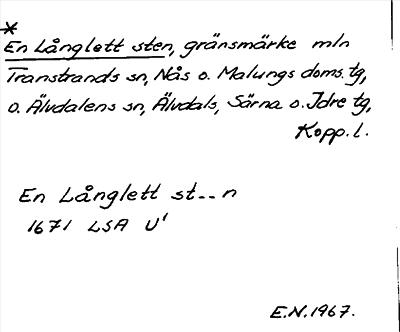 *
En Långlett sten, gränsmärke mln
Transtrands sn, Nås o. Malungs doms. tg,
o. Älvdalens sn, Älvdals, Särna o. Idre tg,
Kopp. l.
En Långlett st..n
1671 LSA U'
E.N. 1967.